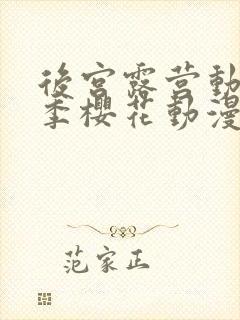 後宮露营動
季櫻花動漫
范家正